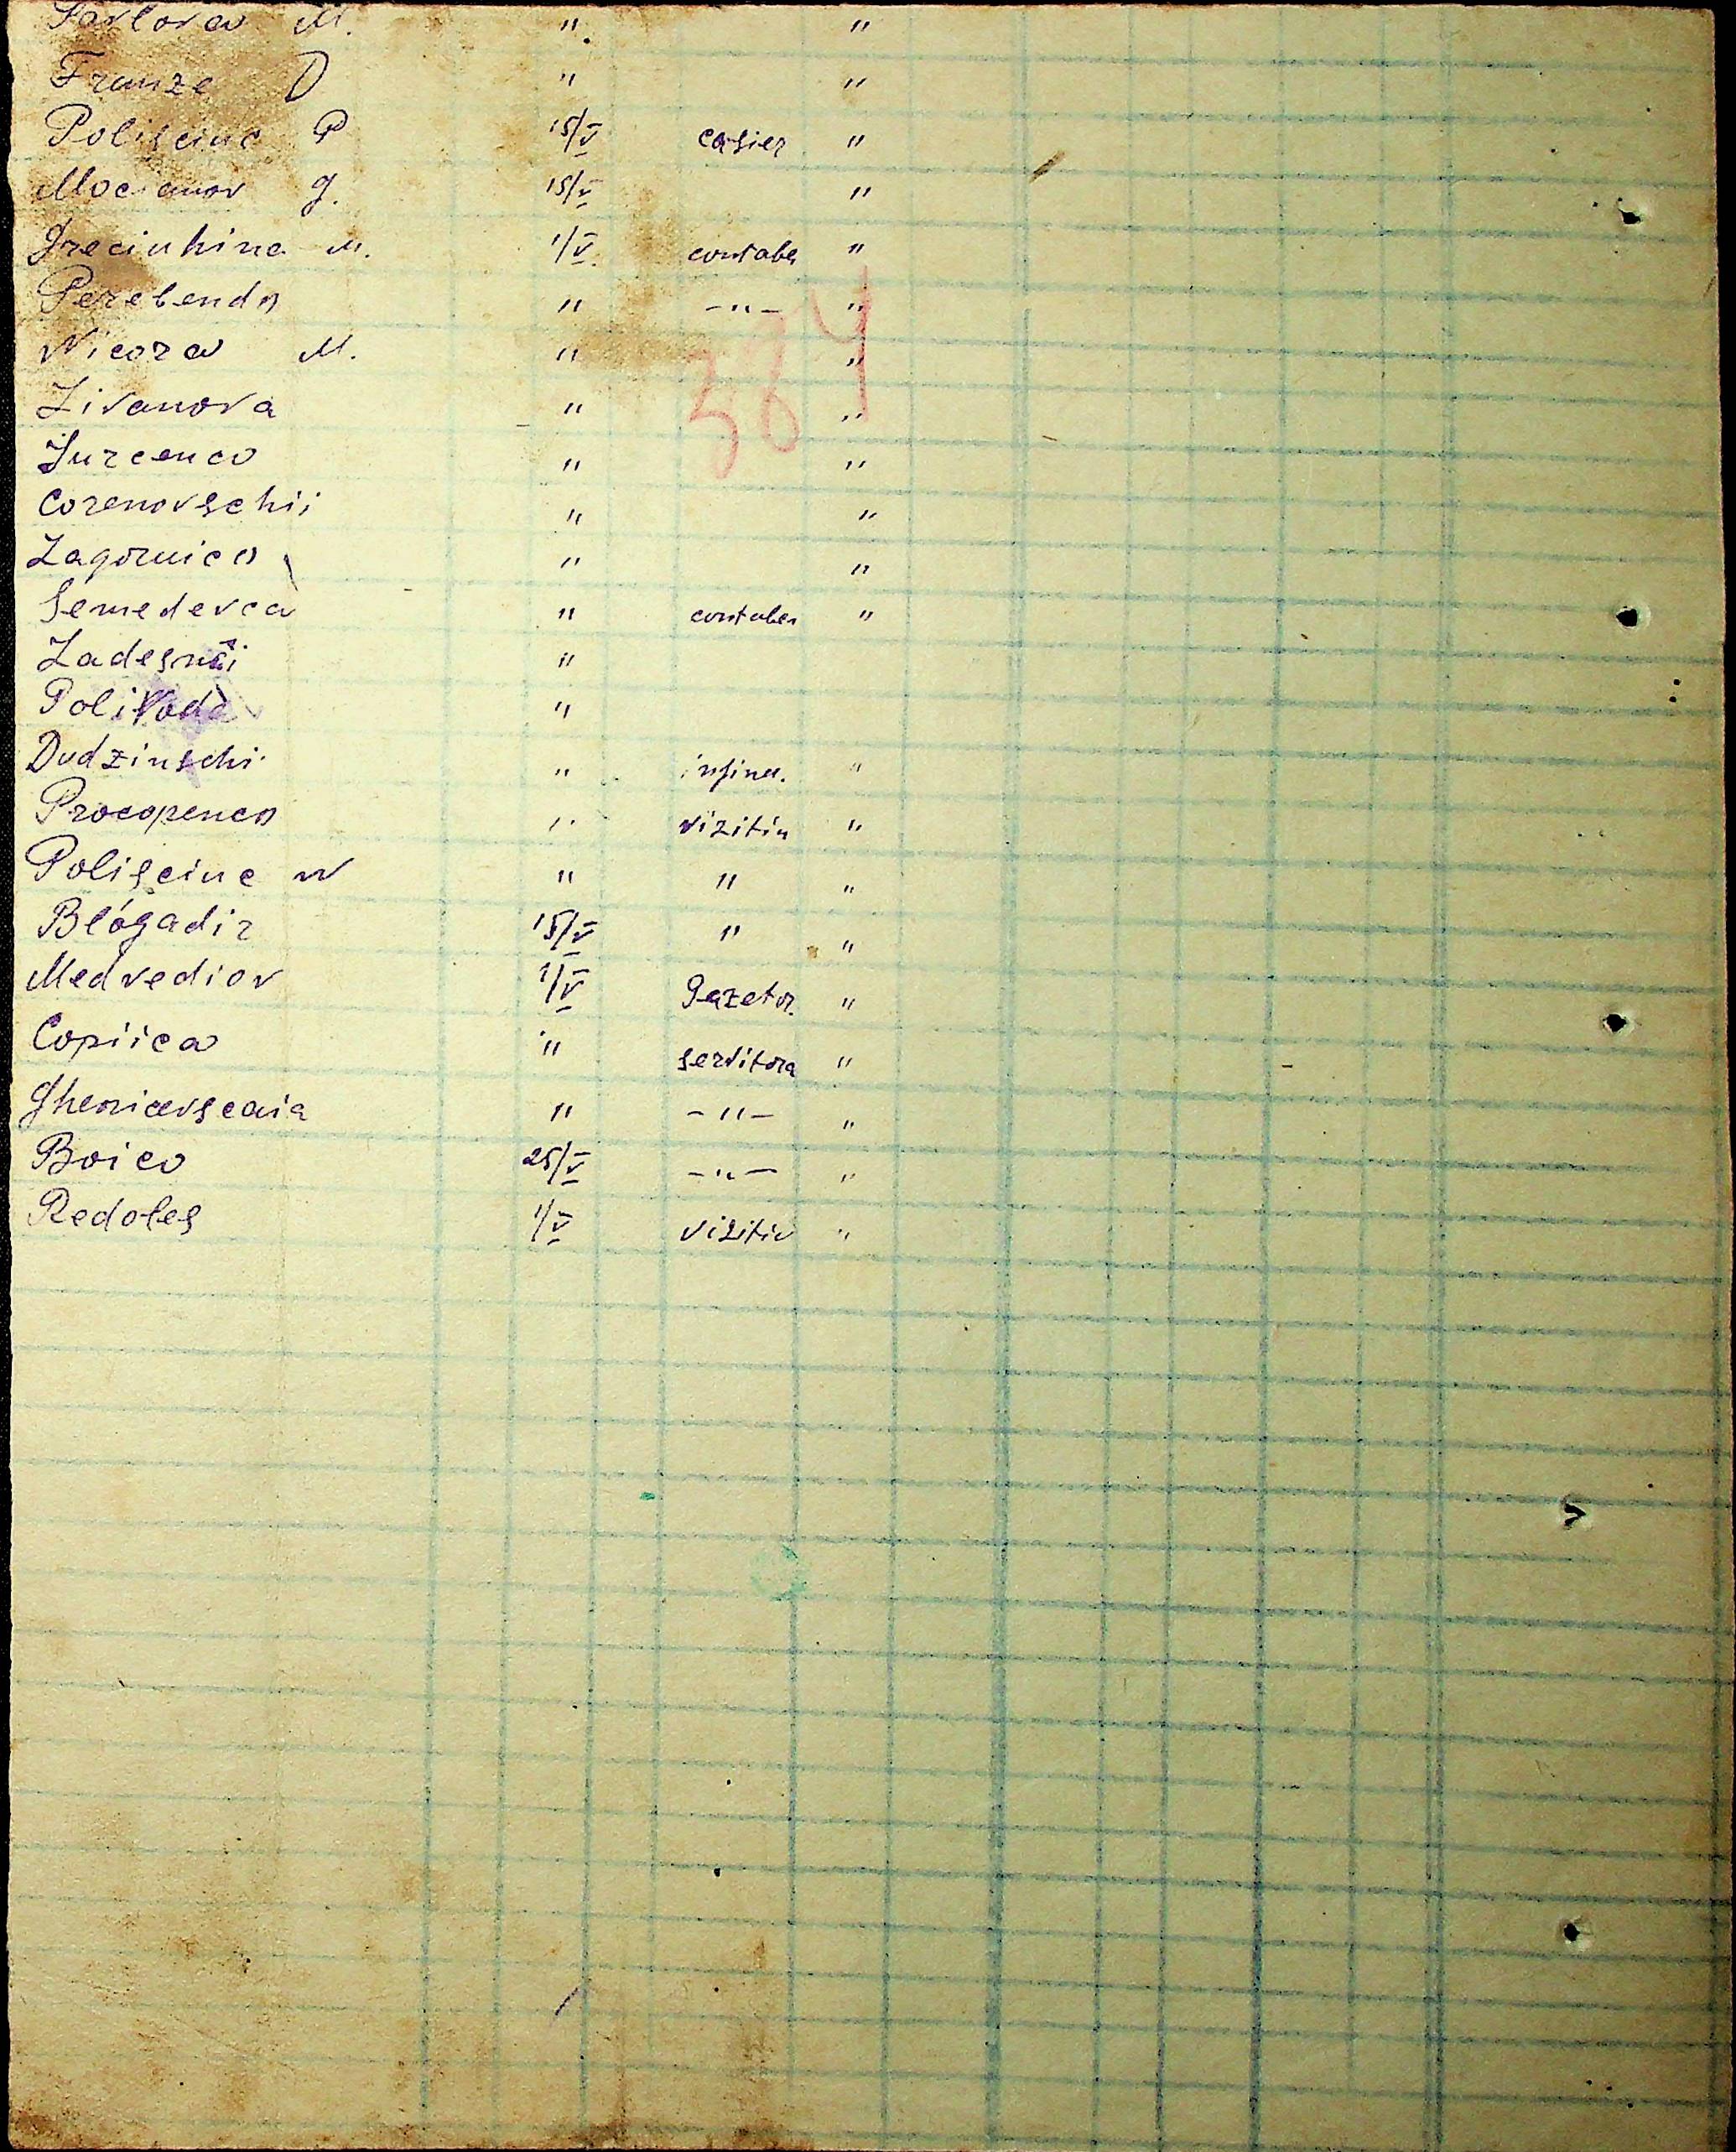 Pavlova M. " "
Frunze D " "
Polisciuc P 15/V casier "
Mocanov G. 15/V "
Greciuhina M. 1/V contabe "
Perebendo " -"- "
Nicora M. " "
Livanova " "
Jurcenco " "
Corenovschii " "
Zagornico " "
Semedevca " contaben "
Zadesnâi "
Polivoda "
Dudzinschi " "
Procopenco " vizitiu "
Polisciuc N " " "
Belogadir 15/V " "
Medvediov 1/V Gazetor. "
Copiica " servitora "
Ghenicevscaia " -"- "
Boico 25/V -"- "
Redoles 1/V vizitiu "
384